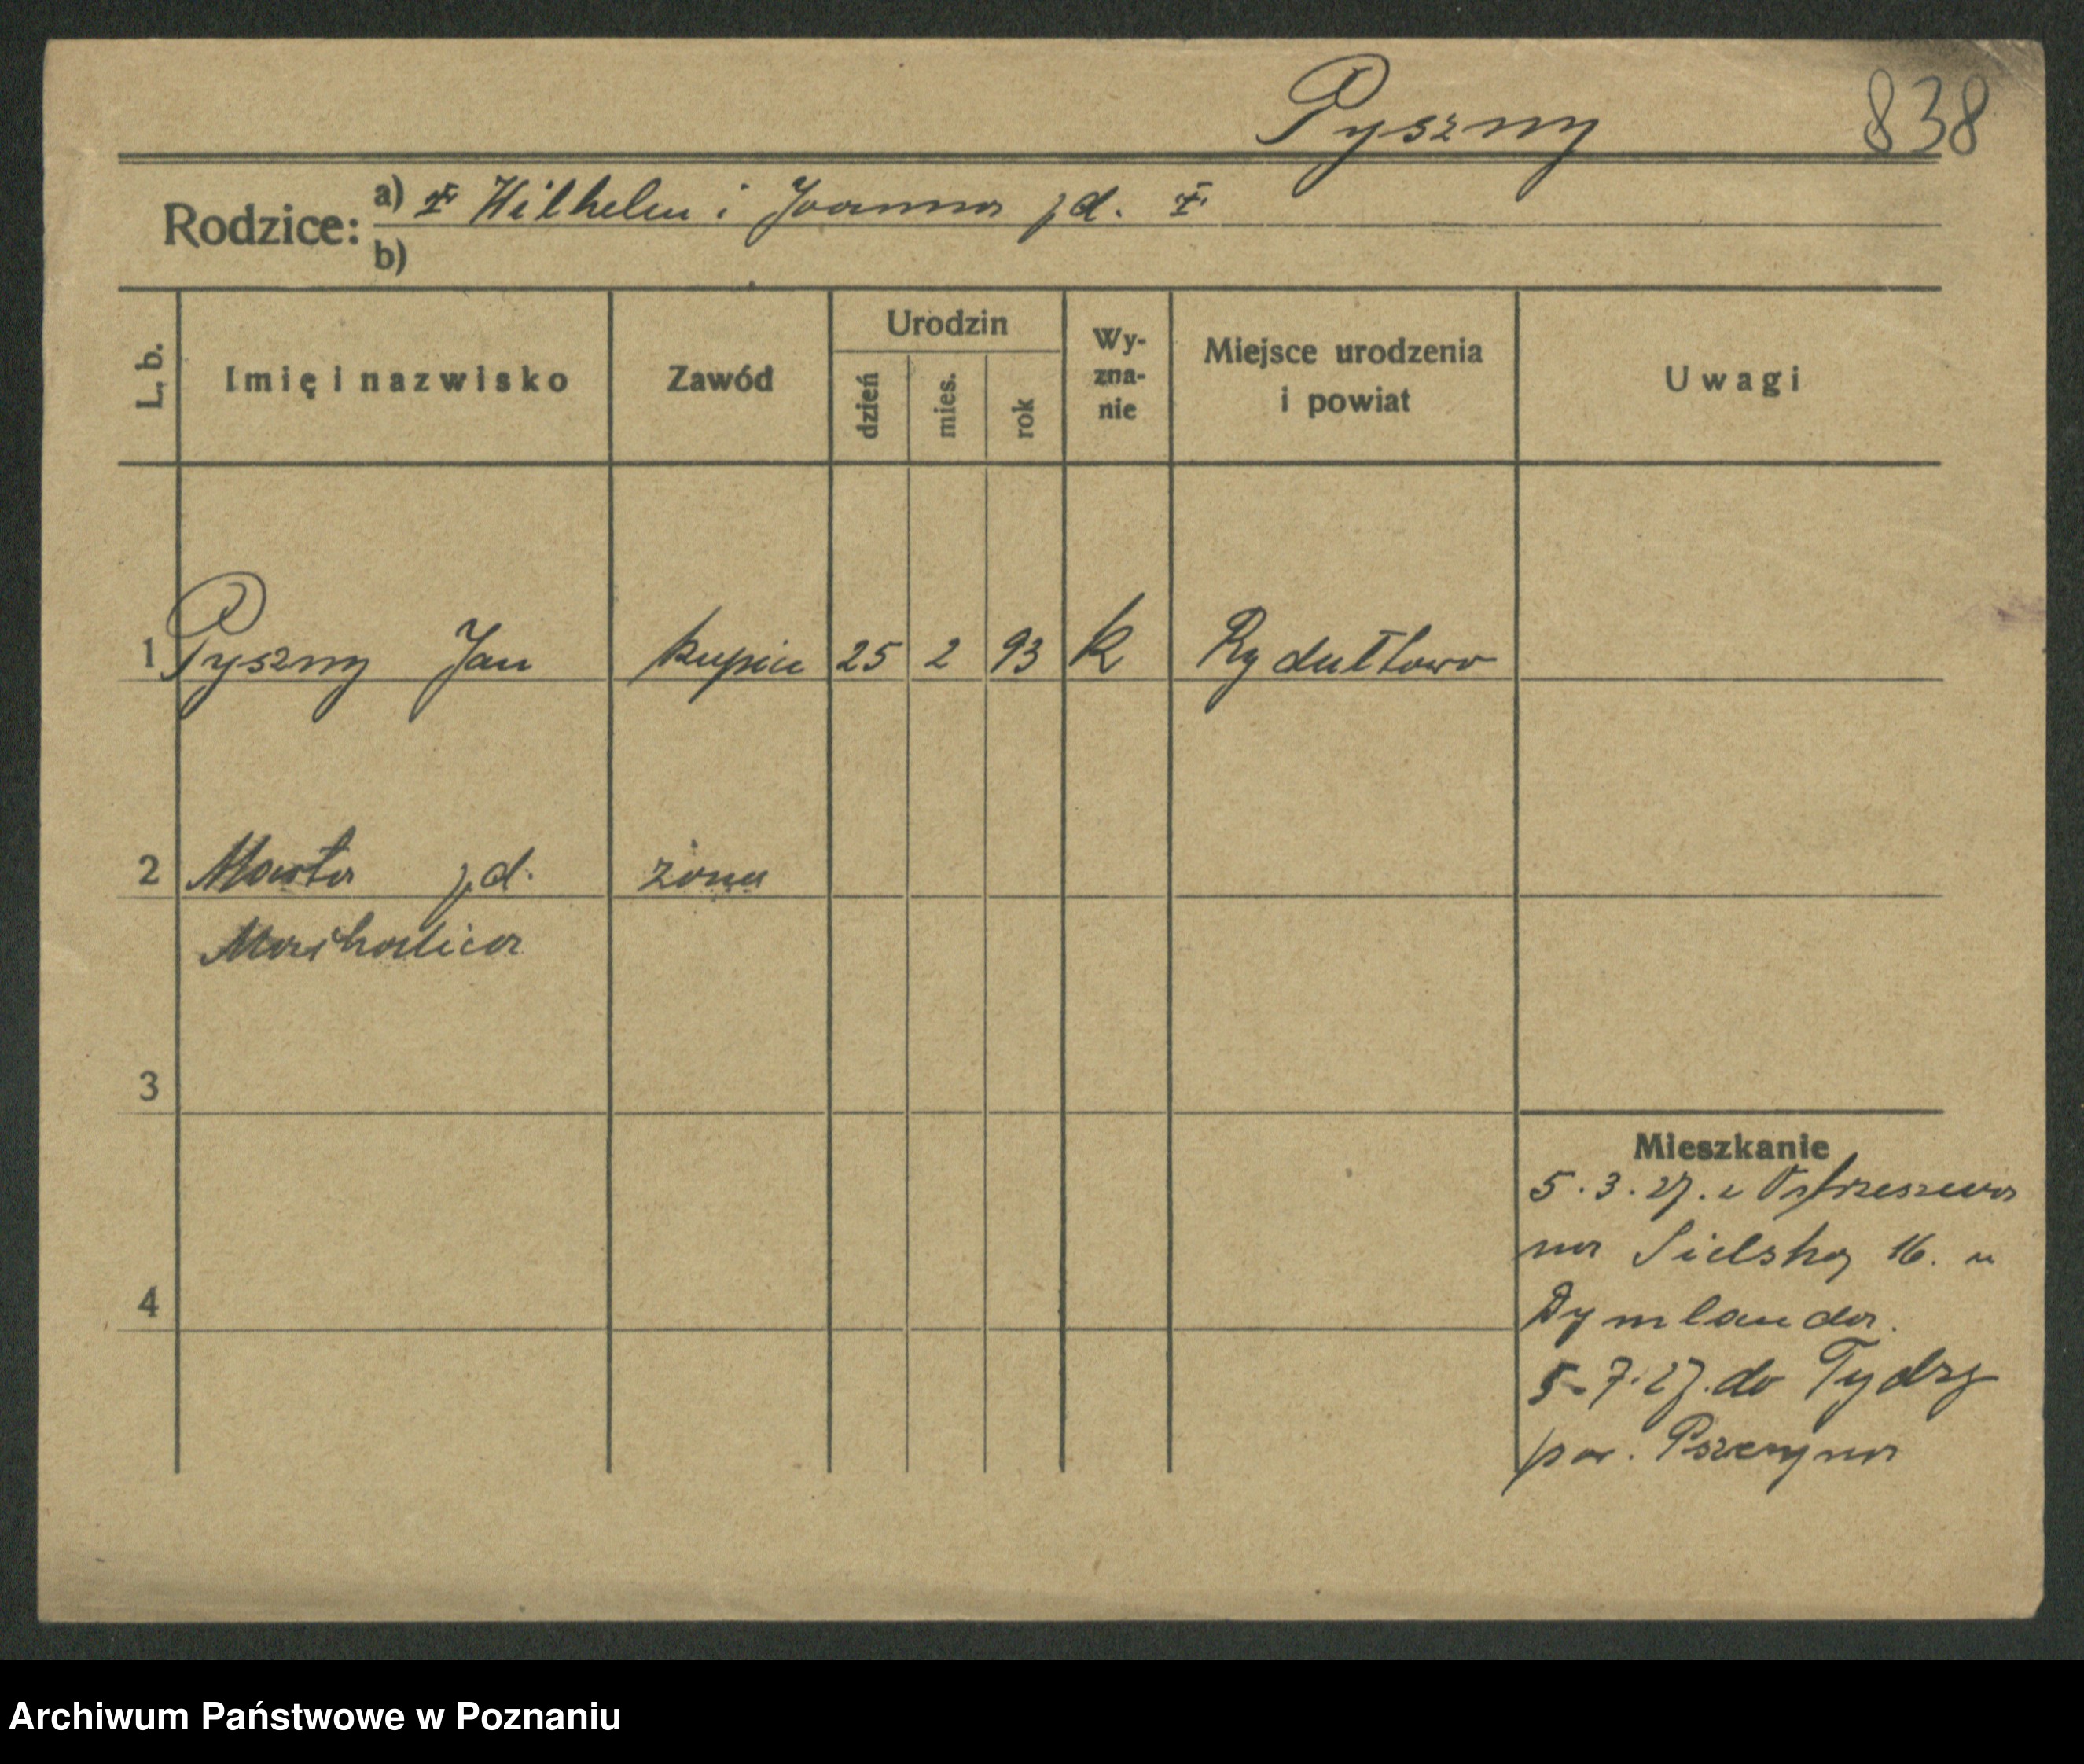 Pyszny 838
Rodzice: a) Wilhelm i Joanna j.d.
b)
L. b. Imię i nazwisko Zawód Urodzin dzień mies. rok Wy-zna-nie Miejsce urodzenia i powiat Uwagi
1 Pyszny Jan kupiec 25 2 93 k Rydułtowo
2 Marta j.d. żona
3
Mieszkanie
5.3.27. z Ostrzeszowa
na Sielską 16. u
4 Dymlanda.
5.7.27. do
pow. Pszczyna
Archiwum Państwowe w Poznaniu